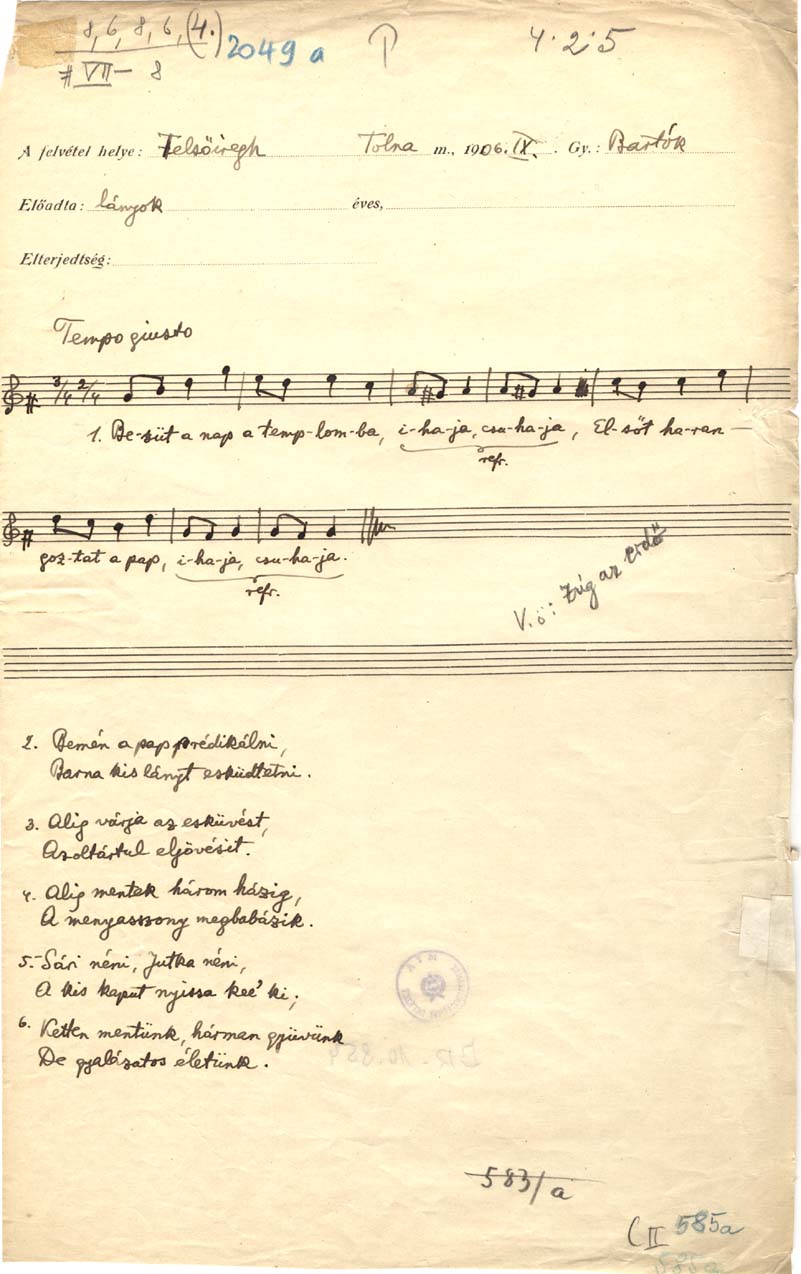 8, 6, 8, 6, (4.)
# VII – 8
2049 a
P
4·2·5
A felvétel helye: Felsőiregh Tolna m., 1906. IX. Gy.: Bartók
Előadta: lányok éves,
Elterjedtség:
Tempo giusto
3/4 2/4
1. Be-süt a nap a temp-lom-ba, i-ha-ja, csu-ha-ja, El-sőt ha-ran-
refr.
goz-tat a pap, i-ha-ja, csu-ha-ja.
refr.
V.ö: Zúg az erdő
2. Bemén a pap prédikálni,
Barna kis lányt esküdtetni.
3. Alig várja az esküvést,
Az oltártul eljövésit.
4. Alig mentek három házig,
A menyasszony megbabázik.
5. Sári néni, Jutka néni,
A kis kaput nyissa kee' ki;
6. Ketten mentünk, hárman gyüvünk
De gyalázatos életünk.
583/a
C II 585a
585a